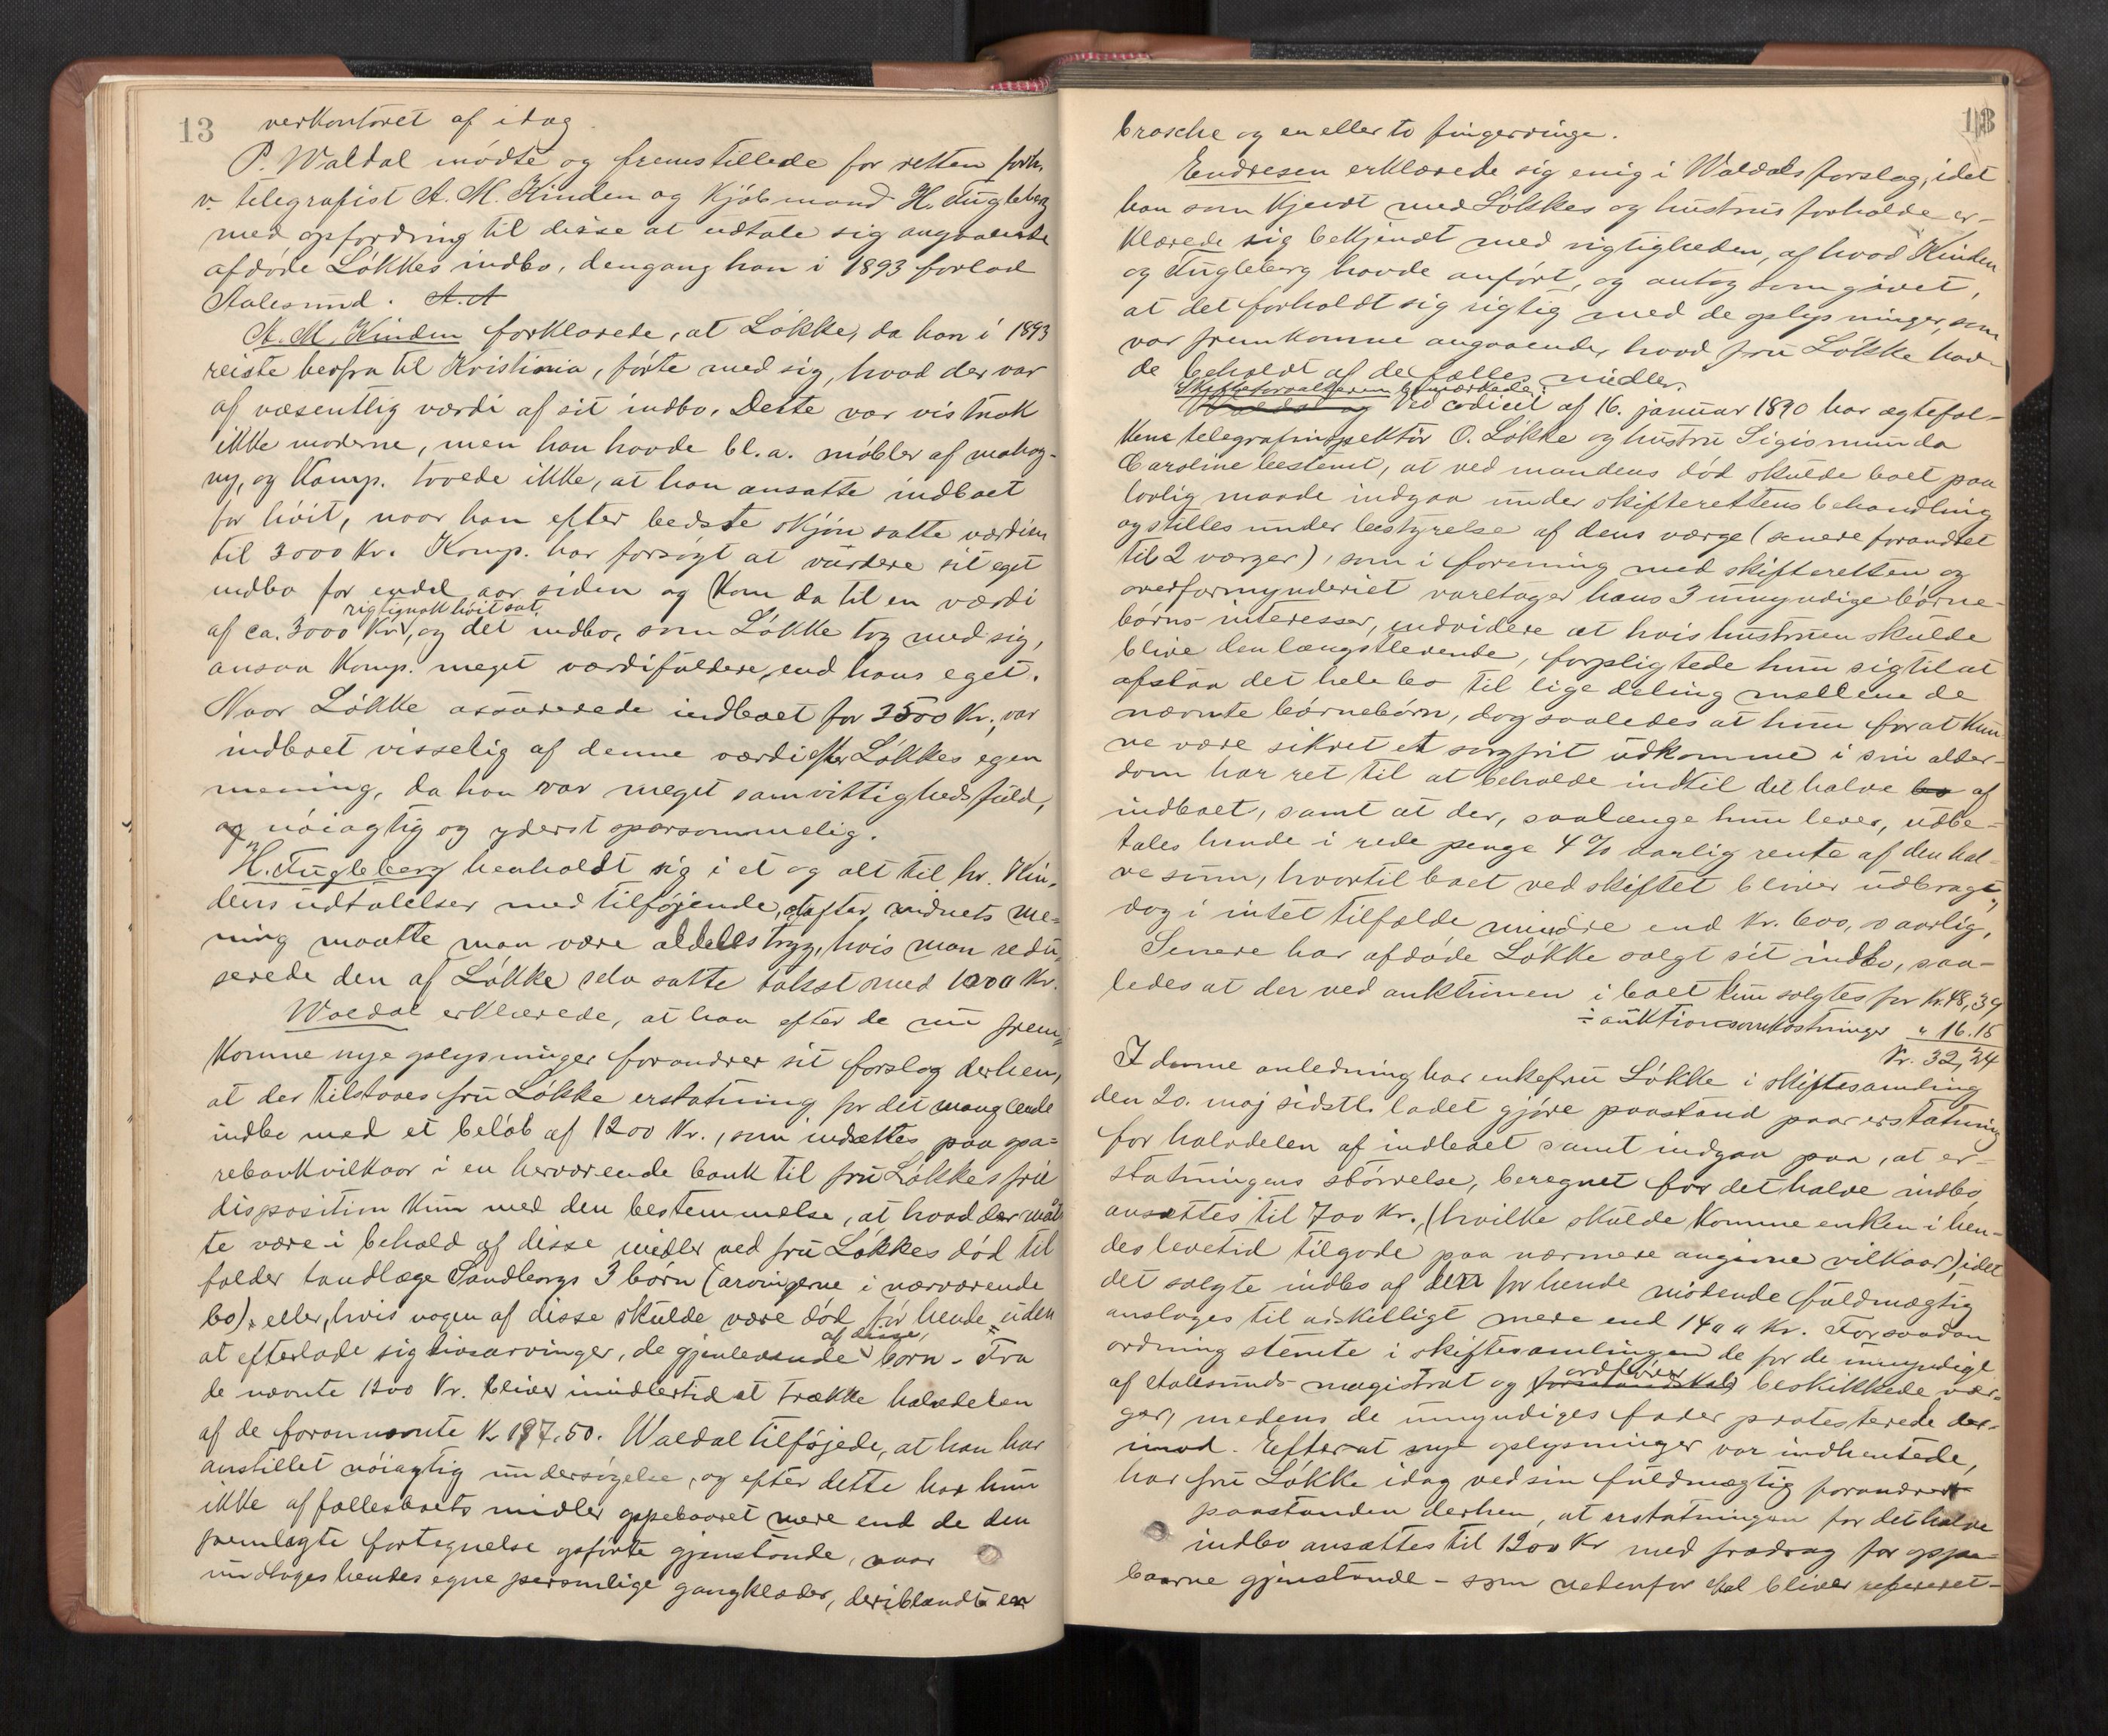 13
verkontoret af idag.
P. Waldal mødte og fremstillede for retten forh.
v. telegrafist A. M. Kinden og kjøbmand H. Fugleberg
med opfordring til disse at udtale sig angaaende
afdøde Løkkes indbo, dengang han i 1893 forlod
Aalesund. A. A
A. M. Kinden forklarede, at Løkke, da han i 1893
reiste herfra til Kristiania, førte med sig, hvad der var
af væsentlig værdi af sit indbo. Dette var vistnok
ikke moderne, men han havde bl. a. møbler af mahog-
ny, og komp. troede ikke, at han ansatte indboet
for høit, naar han efter bedste skjøn satte værdien
til 3000 Kr. Komp. har forsøgt at vurdere sit eget
indbo for endel aar siden og kom da til en værdi
rigtignok høit sat
af ca. 3000 Kr., og det indbo, som Løkke tog med sig,
ansaa komp. meget værdifuldere, end hans eget.
Naar Løkke assurerede indboet for 3500 Kr., var
indboet visselig af denne værdi efter Løkkes egen
mening, da han var meget samvittighedsfuld,
og nøiagtig og yderst sparsommelig.
H. Fugleberg henholdt sig i et og alt til hr. Kin-
dens udtalelser med tilføjende, at efter vidnets me-
ning maatte man være aldeles tryg, hvis man redu-
serede den af Løkke selv satte takst med 1000 Kr.
Waldal erklærede, at han efter de nu frem-
komne nye oplysninger forandrer sit forslag derhen,
at der tilstaaes fru Løkke erstatning for det manglende
indbo med et beløb af 1200 Kr., som indsættes paa spa-
rebankvilkaar i en herværende bank til fru Løkkes frie
disposition kun med den bestemmelse, at hvad der maat-
te være i behold af disse midler ved fru Løkkes død til-
falder tandlæge Sandborgs 3 børn (arvingerne i nærværende
bo), eller, hvis nogen af disse skulde være død før hende uden
af disse,
at efterlade sig livsarvinger, de gjenlevende børn. – Fra
de nævnte 1200 Kr. bliver imidlertid at trække halvdelen
af de forannævnte Kr 187.50. Waldal tilføjede, at han har
anstillet nøiagtig undersøgelse, og efter dette har hun
ikke af fællesboets midler oppebaaret mere end de den
fremlagte fortegnelse opførte gjenstande, naar
undtages hendes egne personlige gangklæder, deriblandt en
13
brosche og en eller to fingerringe.
Endresen erklærede sig enig i Waldals forslag, idet
han som kjendt med Løkkes og hustrus forholde er-
klærede sig bekjendt med rigtigheden, af hvad Kinden
og Fugleberg havde anført, og antog som givet,
at det forholdt sig rigtig med de oplysninger, som
var fremkomne angaaende, hvad fru Løkke hav-
de beholdt af de fælles midler.
Skifteforvalteren bemærkede:
Waldal og Ved codicil af 16. januar 1890 har ægtefol-
kene telegrafinspektør O. Løkke og hustru Sigismunda
Caroline bestemt, at ved mandens død skulde boet paa
lovlig maade indgaa under skifterettens behandling
og stilles under bestyrelse af dens værge (senere forandret
til 2 værger), som i forening med skifteretten og
overformynderiet varetager hans 3 umyndige børne-
børns interesser, endvidere at hvis hustruen skulde
blive den længstlevende, forpligtede hun sig til at
afstaa det hele bo til lige deling mellem de
nævnte børnebørn, dog saaledes at hun for at kun-
ne være sikret et sorgfrit udkomme i sin alder-
dom har ret til at beholde indtil det halve bo af
indboet, samt at der, saalænge hun lever, udbe-
tales hende i rede penge 4 % aarlig rente af den hal-
ve sum, hvortil boet ved skiftet bliver udbragt,
dog i intet tilfælde mindre end Kr. 600,0 aarlig.
Senere har afdøde Løkke solgt sit indbo, saa-
ledes at der ved auktionen i boet kun solgtes for Kr. 48,39
÷ auktionsomkostninger " 16.15
Kr. 32,24
I denne anledning har enkefru Løkke i skiftesamling
den 20. maj sidstl. ladet gjøre paastand paa erstatning
for halvdelen af indboet samt indgaa paa, at er-
statningens størrelse, beregnet for det halve indbo,
ansættes til 700 Kr., (hvilke skulde komme enken i hen-
des levetid tilgode paa nærmere angivne vilkaar), idet
det solgte indbo af den for hende mødende fuldmægtig
ansloges til adskilligt mere end 1400 Kr. For saadan
ordning stemte i skiftesamlingen de for de umyndige
ordfører
af Aalesunds magistrat og formandskab beskikkede vær-
ger, medens de umyndiges fader protesterede der-
imod. Efterat nye oplysninger var indhentede,
har fru Løkke idag ved sin fuldmægtig forandret
paastanden derhen, at erstatningen for det halve
indbo ansættes til 1200 Kr med fradrag for oppe-
baarne gjenstande – som nedenfor skal bliver refereret –